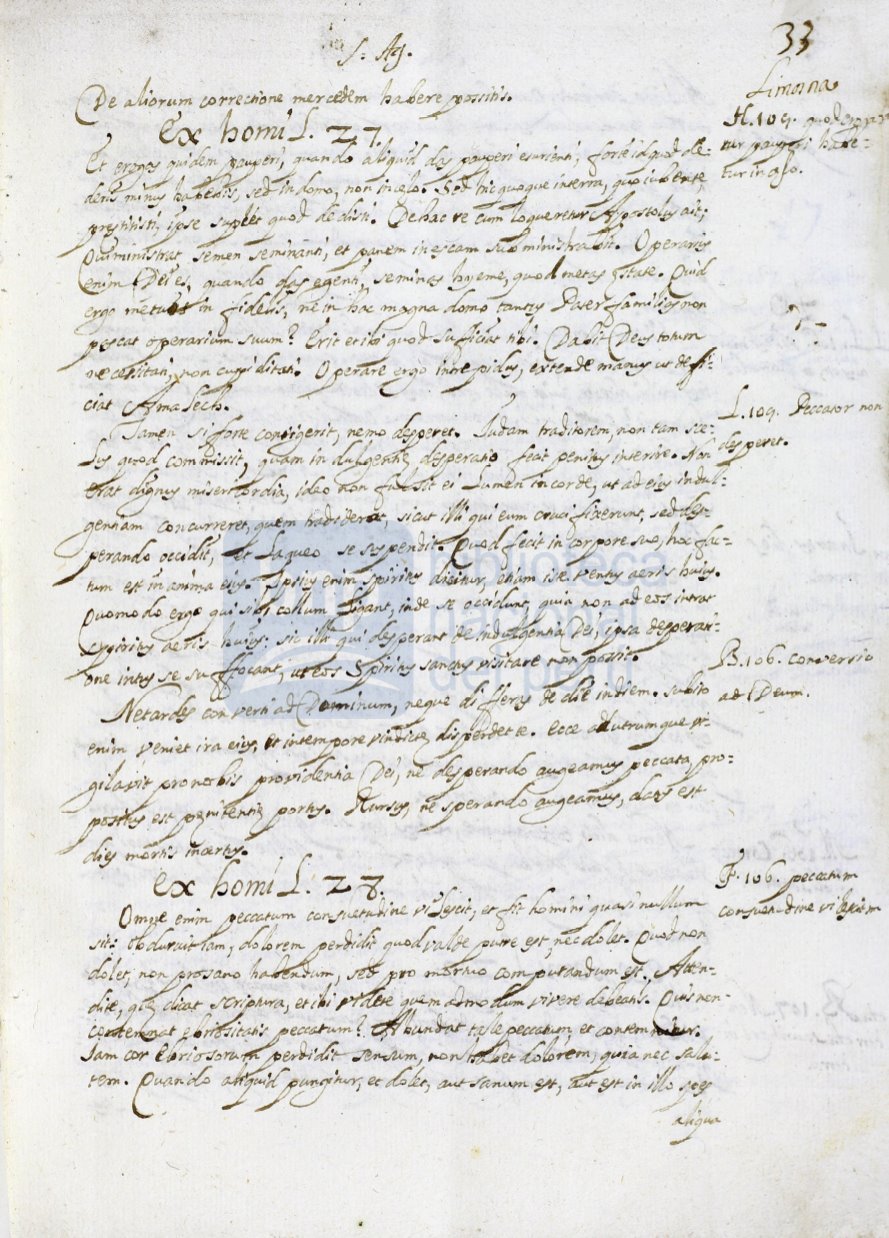 33
S. Ag.
De aliorum correctione mercedem habere possitis.
Limosna
Ex homil. 27.
H. 109. quod erogatur pauperi habetur in cęlo.
Et erogas quidem pauperi, quando aliquid das pauperi esurienti, forte id quod dę-
deris minus habebis, sed in domo, non in cęlo. Sed hic quoque in terra, quo iubente,
pręstitisti, ipse supplet quod dedisti. De hac re cum loqueretur Apostolus ait;
Qui ministrat semen seminanti, et panem in escam subministrabit. Operarius
enim Dei es, quando das egenti, seminas hyeme, quod metas ęstate. Quid
ergo metuis infidelis, ne in hac magna domo tantus Paterfamilias non
pascat operarium suum? Erit et ibi quod sufficiat tibi. Dabit Deus totum
necessitati, non cupiditati. Operare ergo intrepidus, extende manus ut defi-
ciat Amalech.
L. 109. Peccator non desperet.
Tamen si forte contigerit, nemo desperet. Iudam traditorem, non tam sce-
lus quod commissit, quam indulgentię desperatio fecit penitus interire. Non
erat dignus misericordia, ideo non fulsit ei lumen in corde, ut ad eius indul-
gentiam concurreret, quem tradiderat, sicut illi qui eum crucifixerunt, sed des-
perando occidit, et laqueo se suspendit. Quod fecit in corpore suo, hoc fac-
tum est in anima eius. Spiritus enim spiritus dicitur, etiam iste ventus aeris huius.
Quomodo ergo qui sibi collum ligant, inde se occidunt, quia non ad eos intrat
spiritus aeris huius: sic illi qui desperant de indulgentia Dei, ipsa desperati-
one intus se suffocant, ut eos Spiritus sanctus visitare non possit.
B. 106. conversio ad Deum.
Ne tardes converti ad Dominum, neque differas de die in diem. subito
enim veniet ira eius, et in tempore vindictę disperdet te. Ecce ad utrumque vi-
gilavit pro nobis providentia Dei, ne desperando augeamus peccata, pro-
positus est pęnitentię portus. Rursus, ne sperando augeamus, datus est
dies mortis incertus.
Ex homil. 28.
F. 106. peccatum consuetudine vilescit
Omne enim peccatum consuetudine vilescit, et fit homini quasi nullum
sit: obduruit iam, dolorem perdidit quod valde putre est, nec dolet. Quod non
dolet, non pro sano habendum, sed pro mortuo computandum est. Atten-
dite, quę dicat scriptura, et ibi videte quemadmodum vivere debeatis. Quis non
contemnat ebriositatis peccatum? Abundat tale peccatum et contemnitur.
Iam cor ebriosorum perdidit sensum, non habet dolorem, quia nec salu-
tem. Quando aliquid pungitur, et dolet, aut sanum est, aut est in illo spes
aliqua
biblioteca
nacional
del perú